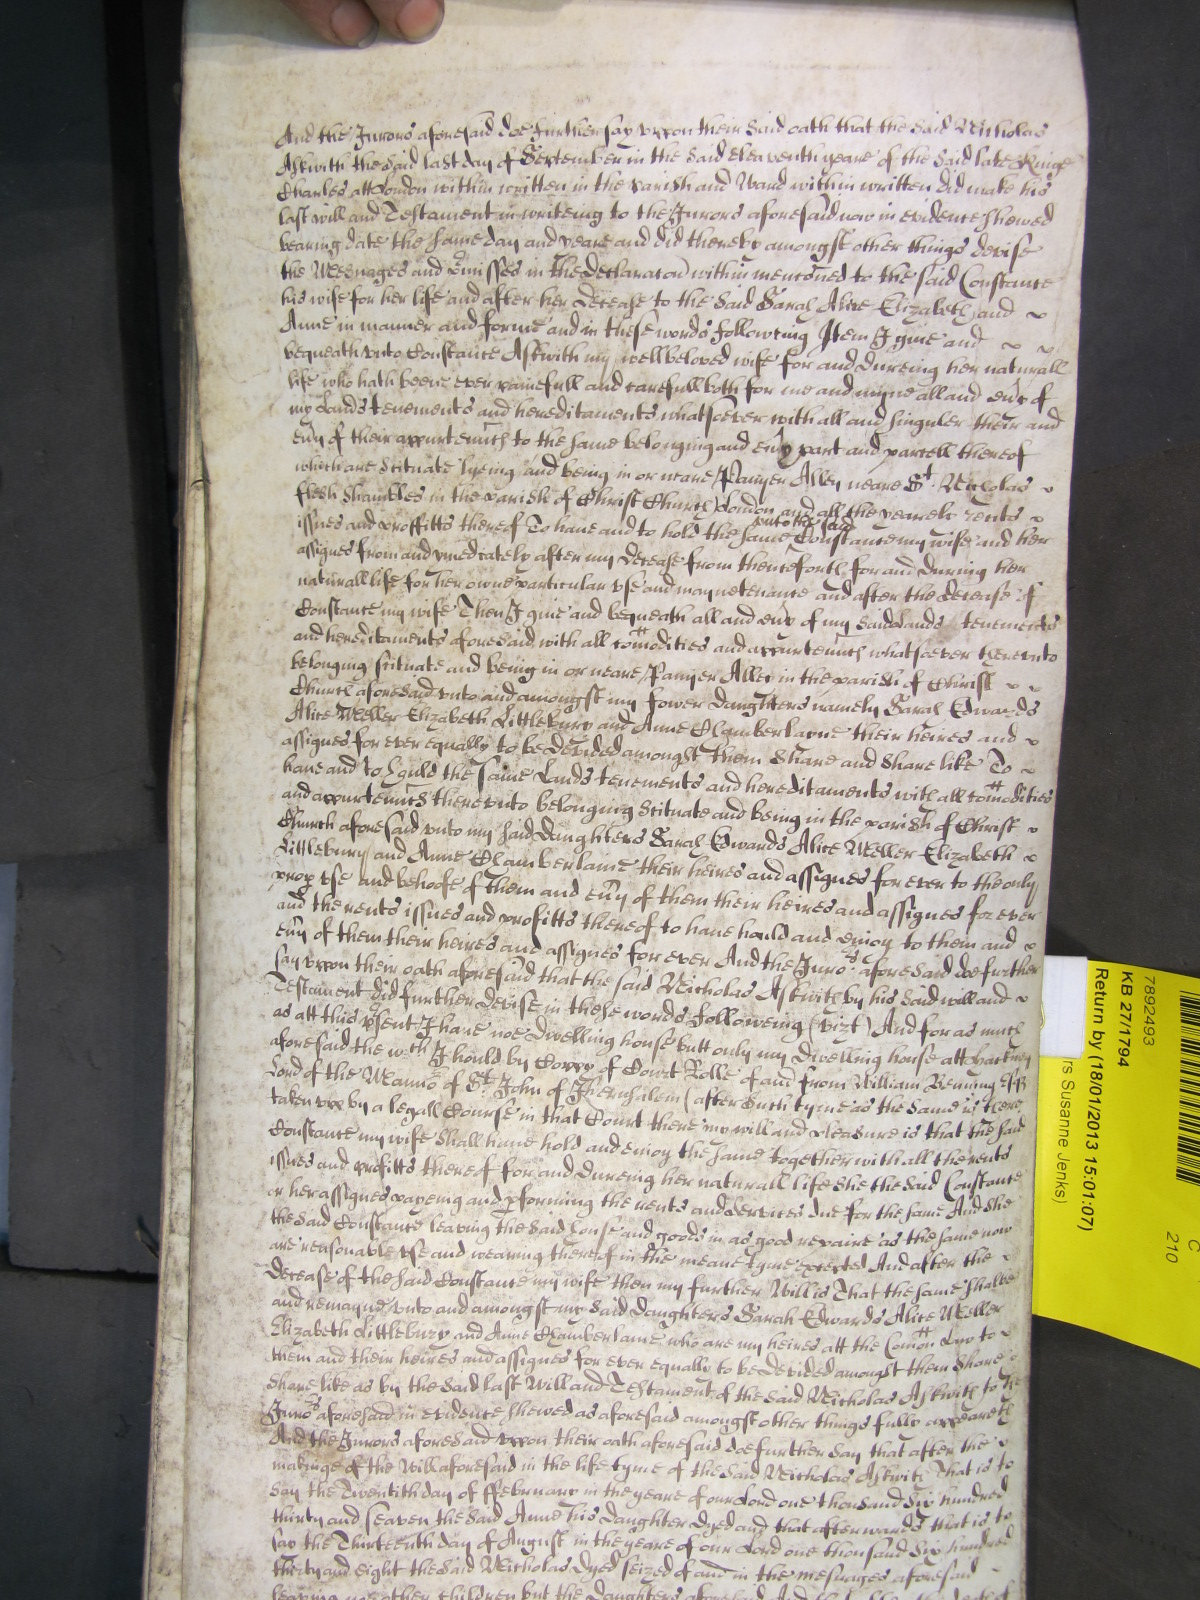 And the Jurors aforesaid doe further say vppon their said oath that the said Nicholas
Askwith the said last day of September in the said eleaventh yeare of the said late Kinge
Charles att London within written in the parish and Ward within written did make his
last will and Testament in writeing to the Jurors aforesaid now in evidence shewed
bearing date the same day and yeare and did thereby amongst other things devise
the Mesuages and pmisses in the Declaracon within mentioned to the said Constance
his wife for her life and after her decease to the said Sarah Alice Elizabeth and
Anne in manner and forme and in these words following Item I giue and
bequeath vnto Constance Askwith my welbeloved wife for and dureing her naturall
life who hath beene ever painefull and carefull both for me and myne all and euy of
my Lands tenements and hereditaments whatsoever with all and singuler their and
euy of their appurtennces to the same belonging and euy part and parcell thereof
which are scituate lyeing and being in or neare Panyer Alley neare St. Nicholas
flesh shambles in the parish of Christ Church London and all the yearely rents
issues and proffitts thereof To haue and to hold the same vnto the said Constance my wife and her
assignes from and ymediately after my decease from thenceforth for and during her
naturall life for her owne particular vse and maynetenance and after the decease of
Constance my wife Then I giue and bequeath all and euy of my said Lands tenements
and hereditaments aforesaid with all comodities and appurtennces whatsoever therevnto
belonging scituate and being in or neare Panyer Alley in the parish of Christ
Church aforesaid vnto and amongst my fower daughters namely Sarah Edwards
Alice Weller Elizabeth Littlebury and Anne Chamberlayne their heires and
assignes for ever equally to be devided amongst them share and share like To
haue and to hould the same Lands tenements and hereditaments with all comodities
and appurtennces therevnto belonging scituate and being in the parish of Christ
Church aforesaid vnto my said daughters Sarah Edwards Alice Weller Elizabeth
Littlebury and Anne Chamberlaine their heires and assignes for ever to the only
prop vse and behoofe of them and euy of them their heires and assignes for ever
and the rents issues and profitts thereof to haue hould and enioy to them and
euy of them their heires and assignes for ever And the Jurors aforesaid doe further
say vppon their oath aforesaid that the said Nicholas Askwith by his said will and
Testament did further devise in these words followeing (vizt) And for as much
as att this psent I haue noe dwelling house butt only my dwelling house att Hackney
aforesaid the wch I hould by Coppy of Court Rolle of and from William Benning Esqr
Lord of the Mannor of St. John of Jherusalem (after such tyme as the same is there
taken vpp by a legall Course in that Court there my will and pleasure is that the said
Constance my wife shall haue hold and enioy the same together with all the rents
issues and profitts thereof for and dureing her naturall life She the said Constance
or her assignes payeing and pforming the rents and services due for the same And she
the said Constance leaving the said house and goods in as good repaire as the same now
are reasonable vse and wearing thereof in the meane tyme excepted And after the
decease of the said Constance my wife then my further Will is That the same shalbe
and remayne vnto and amongst my said daughters Sarah Edwards Alice Weller
Elizabeth Littlebury and Anne Chamberlaine who are my heires att the Comon Law to
them and their heires and assignes for ever equally to be devided amongst them share
share like as by the said last Will and Testament of the said Nicholas Askwith to the
Jurors aforesaid in evidence shewed as aforesaid amongst other things fully appeareth
And the Jurors aforesaid vppon their oath aforesaid doe further say that after the
makinge of the Will aforesaid in the life tyme of the said Nicholas Askwith That is to
say the Twentith day of ffebruary in the yeare of our Lord one thousand six hundred
thirty and seaven the said Anne his daughter dyed and that afterwards that is to
say the Thirteenth day of August in the yeare of our Lord one thousand six hundred
thirty and eight the said Nicholas dyed seized of and in the mesuages aforesaid
leaving noe other children but the daughters aforesaid And
7892493
KB 27/1794
Return by (18/01/2013 15:01:07)
rs Susanne Jenks)
C
210